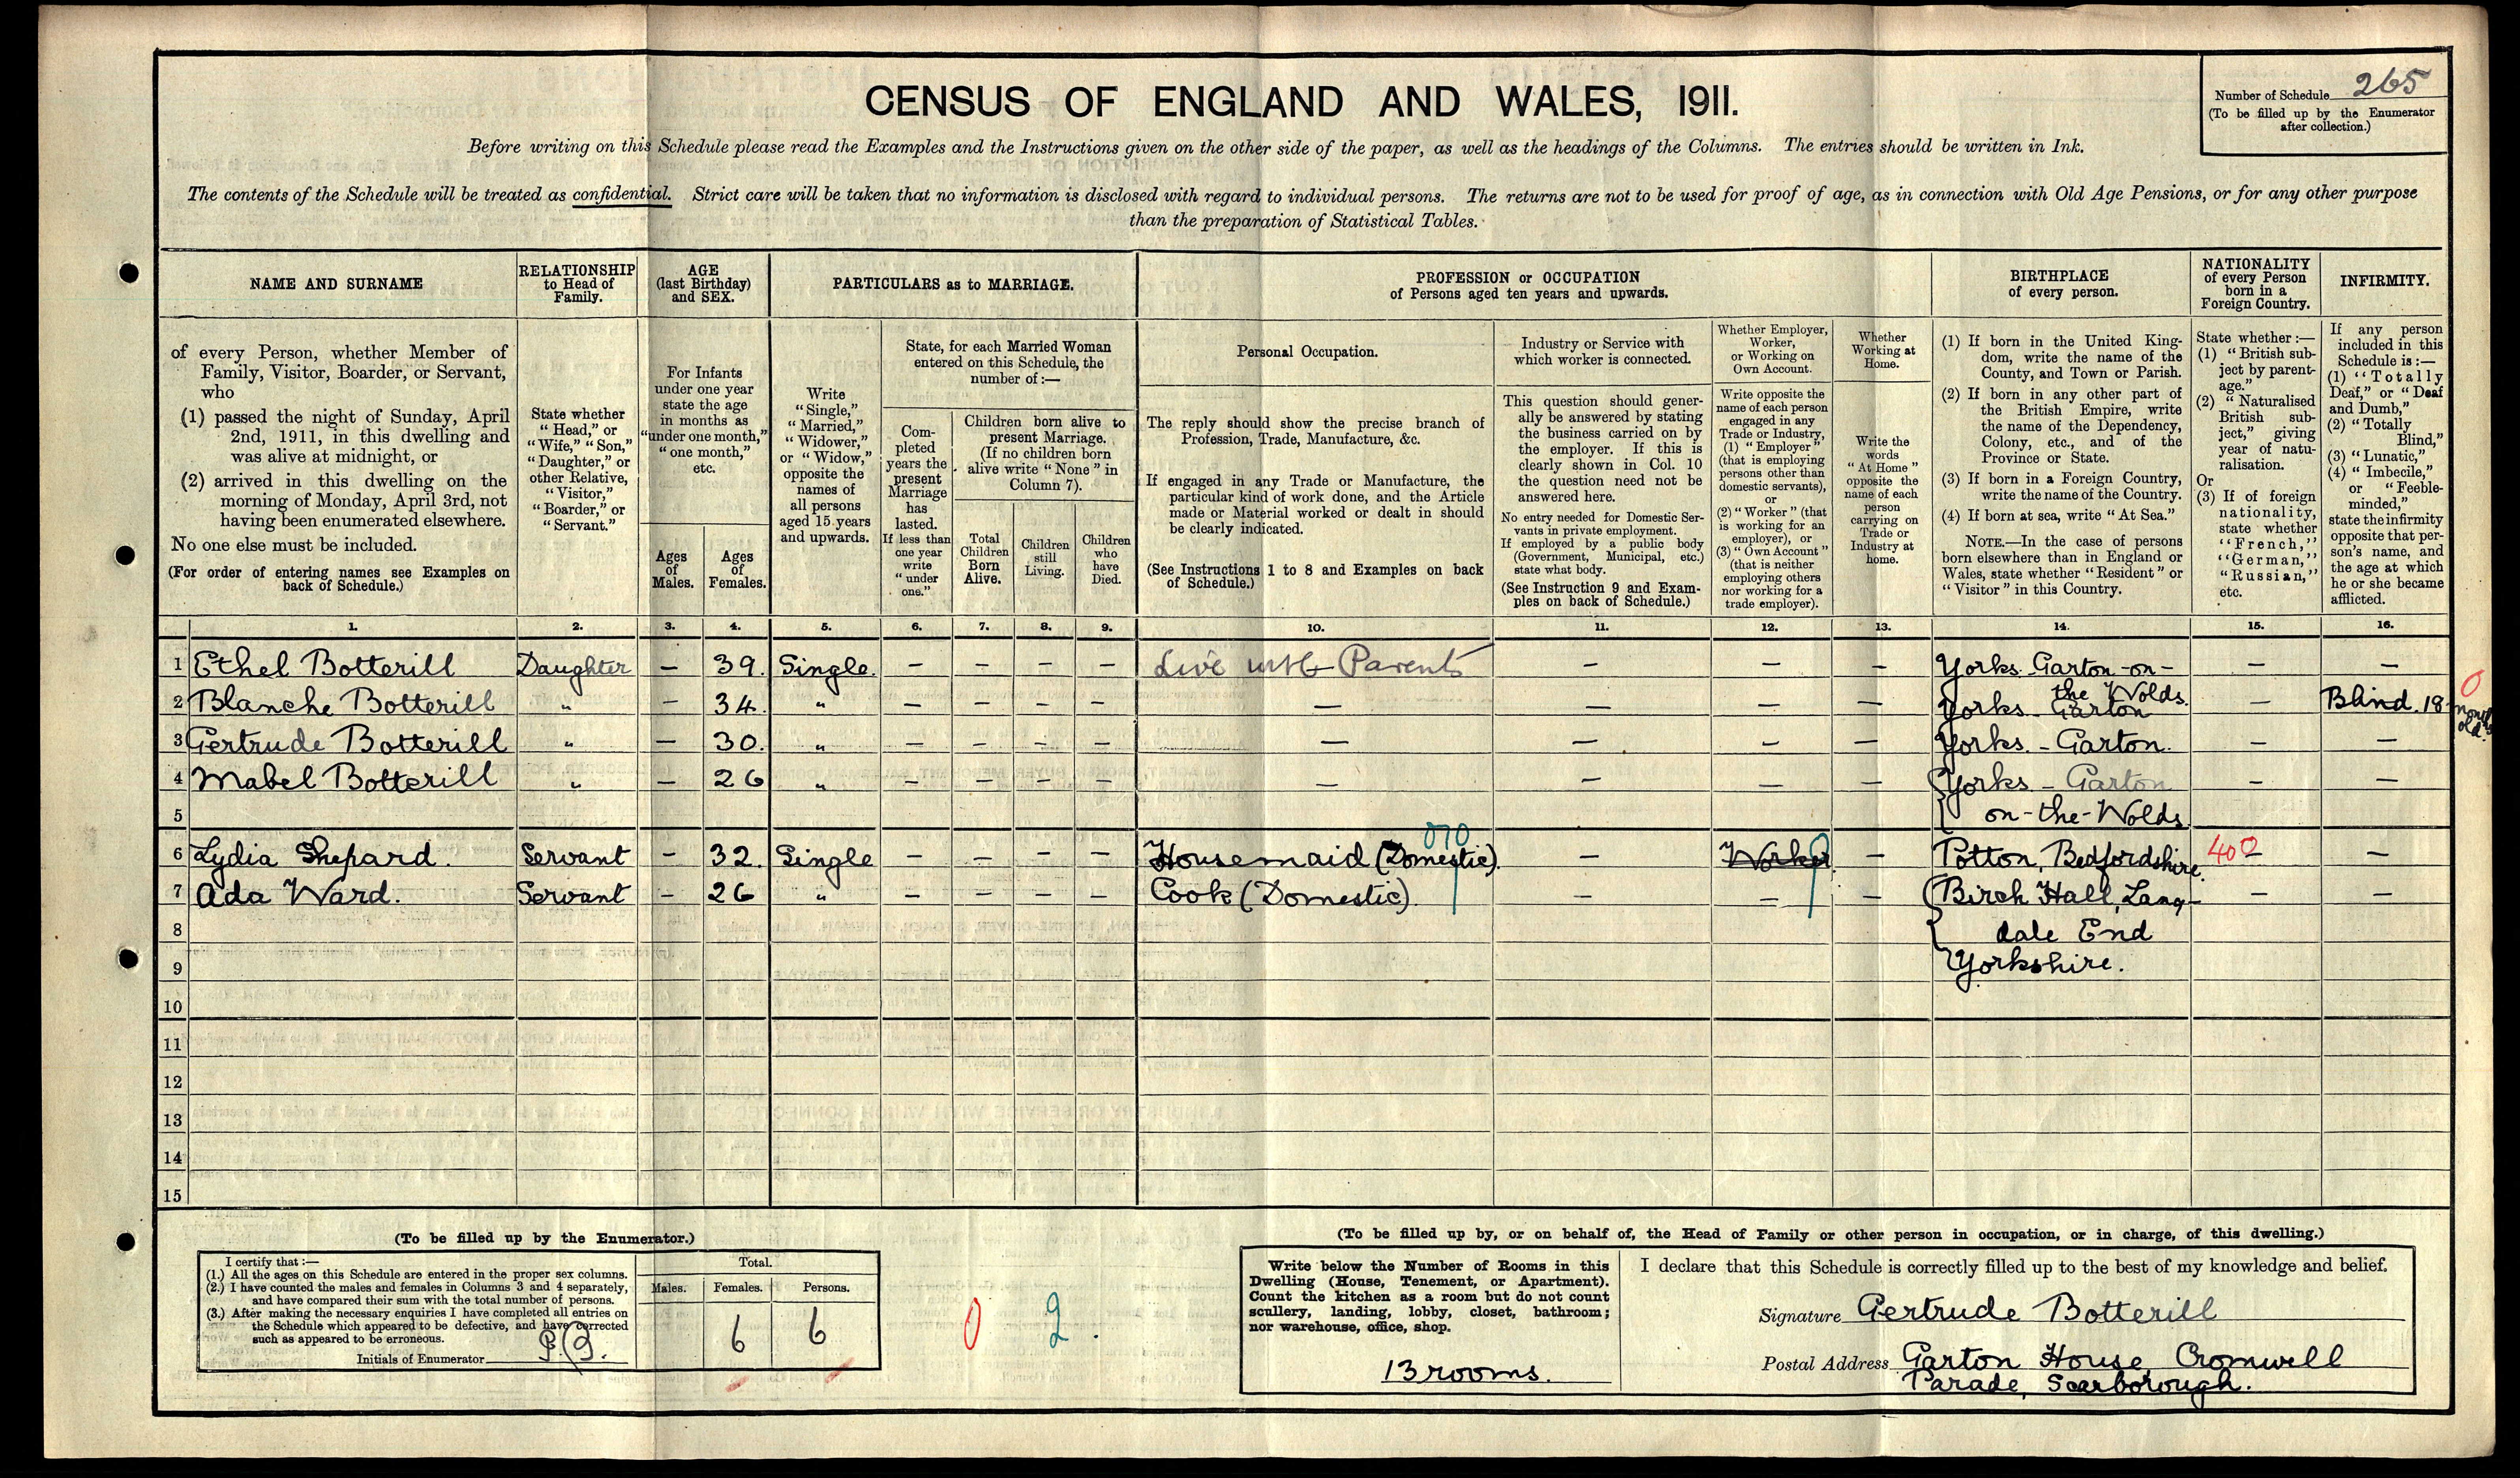 CENSUS OF ENGLAND AND WALES, 1911.
Number of Schedule 265
(To be filled up by the Enumerator
after collection.)
Before writing on this Schedule please read the Examples and the Instructions given on the other side of the paper, as well as the headings of the Columns. The entries should be written in Ink.
The contents of the Schedule will be treated as confidential. Strict care will be taken that no information is disclosed with regard to individual persons. The returns are not to be used for proof of age, as in connection with Old Age Pensions, or for any other purpose
than the preparation of Statistical Tables.
NAME AND SURNAME
of every Person, whether Member of
Family, Visitor, Boarder, or Servant,
who
(1) passed the night of Sunday, April
2nd, 1911, in this dwelling and
was alive at midnight, or
(2) arrived in this dwelling on the
morning of Monday, April 3rd, not
having been enumerated elsewhere.
No one else must be included.
(For order of entering names see Examples on
back of Schedule.)
RELATIONSHIP
to Head of
Family.
State whether
"Head," or
"Wife," "Son,"
"Daughter," or
other Relative,
"Visitor,"
"Boarder," or
"Servant."
AGE
(last Birthday)
and SEX.
For Infants
under one year
state the age
in months as
"under one month,"
"one month,"
etc.
Ages
of
Males.
Ages
of
Females.
PARTICULARS as to MARRIAGE.
Write
"Single,"
"Married,"
"Widower,"
or "Widow,"
opposite the
names of
all persons
aged 15 years
and upwards.
State, for each Married Woman
entered on this Schedule, the
number of:—
Com-
pleted
years the
present
Marriage
has
lasted.
If less than
one year
write
"under
one."
Children born alive to
present Marriage.
(If no children born
alive write "None" in
Column 7).
Total
Children
Born
Alive.
Children
still
Living.
Children
who
have
Died.
PROFESSION or OCCUPATION
of Persons aged ten years and upwards.
Personal Occupation.
The reply should show the precise branch of
Profession, Trade, Manufacture, &c.
If engaged in any Trade or Manufacture, the
particular kind of work done, and the Article
made or Material worked or dealt in should
be clearly indicated.
(See Instructions 1 to 8 and Examples on back
of Schedule.)
Industry or Service with
which worker is connected.
This question should gener-
ally be answered by stating
the business carried on by
the employer. If this is
clearly shown in Col. 10
the question need not be
answered here.
No entry needed for Domestic Ser-
vants in private employment.
If employed by a public body
(Government, Municipal, etc.)
state what body.
(See Instruction 9 and Exam-
ples on back of Schedule.)
Whether Employer,
Worker,
or Working on
Own Account.
Write opposite the
name of each person
engaged in any
Trade or Industry,
(1) "Employer"
(that is employing
persons other than
domestic servants),
or
(2) "Worker" (that
is working for an
employer), or
(3) "Own Account"
(that is neither
employing others
nor working for a
trade employer).
Whether
Working at
Home.
Write the
words
"At Home"
opposite the
name of each
person
carrying on
Trade or
Industry at
home.
BIRTHPLACE
of every person.
(1) If born in the United King-
dom, write the name of the
County, and Town or Parish.
(2) If born in any other part of
the British Empire, write
the name of the Dependency,
Colony, etc., and of the
Province or State.
(3) If born in a Foreign Country,
write the name of the Country.
(4) If born at sea, write "At Sea."
NOTE.—In the case of persons
born elsewhere than in England or
Wales, state whether "Resident" or
"Visitor" in this Country.
NATIONALITY
of every Person
born in a
Foreign Country.
State whether:—
(1) "British sub-
ject by parent-
age."
(2) "Naturalised
British sub-
ject," giving
year of natu-
ralisation.
Or
(3) If of foreign
nationality,
state whether
"French,"
"German,"
"Russian,"
etc.
INFIRMITY.
If any person
included in this
Schedule is:—
(1) "Totally
Deaf," or "Deaf
and Dumb,"
(2) "Totally
Blind,"
(3) "Lunatic,"
(4) "Imbecile,"
or "Feeble-
minded,"
state the infirmity
opposite that per-
son's name, and
the age at which
he or she became
afflicted.
1. 2. 3. 4. 5. 6. 7. 8. 9. 10. 11. 12. 13. 14. 15. 16.
1 Ethel Botterill Daughter — 39. Single. — — — — Live with Parents — — — Yorks. Garton-on- — —
the Wolds.
2 Blanche Botterill " — 34. " — — — — — — — — Yorks - Garton — Blind. 18 months old.
0
3 Gertrude Botterill " — 30. " — — — — — — — — Yorks. - Garton. — —
4 Mabel Botterill " — 26 " — — — — — — — — Yorks - Garton — —
5 on-the-Wolds
070
6 Lydia Shepard. Servant — 32. Single — — — — Housemaid (Domestic). — Worker. — Potton, Bedfordshire. 400 — —
7 Ada Ward. Servant — 26 " — — — — Cook (Domestic). — — — Birch Hall, Lang- — —
8 dale End
9 Yorkshire.
10
11
12
13
14
15
(To be filled up by the Enumerator.)
I certify that:—
(1.) All the ages on this Schedule are entered in the proper sex columns.
(2.) I have counted the males and females in Columns 3 and 4 separately,
and have compared their sum with the total number of persons.
(3.) After making the necessary enquiries I have completed all entries on
the Schedule which appeared to be defective, and have corrected
such as appeared to be erroneous.
Initials of Enumerator
Total.
Males. Females. Persons.
6 6
0 2.
(To be filled up by, or on behalf of, the Head of Family or other person in occupation, or in charge, of this dwelling.)
Write below the Number of Rooms in this
Dwelling (House, Tenement, or Apartment).
Count the kitchen as a room but do not count
scullery, landing, lobby, closet, bathroom;
nor warehouse, office, shop.
13 rooms.
I declare that this Schedule is correctly filled up to the best of my knowledge and belief.
Signature Gertrude Botterill
Postal Address Garton House, Cromwell
Parade, Scarborough.